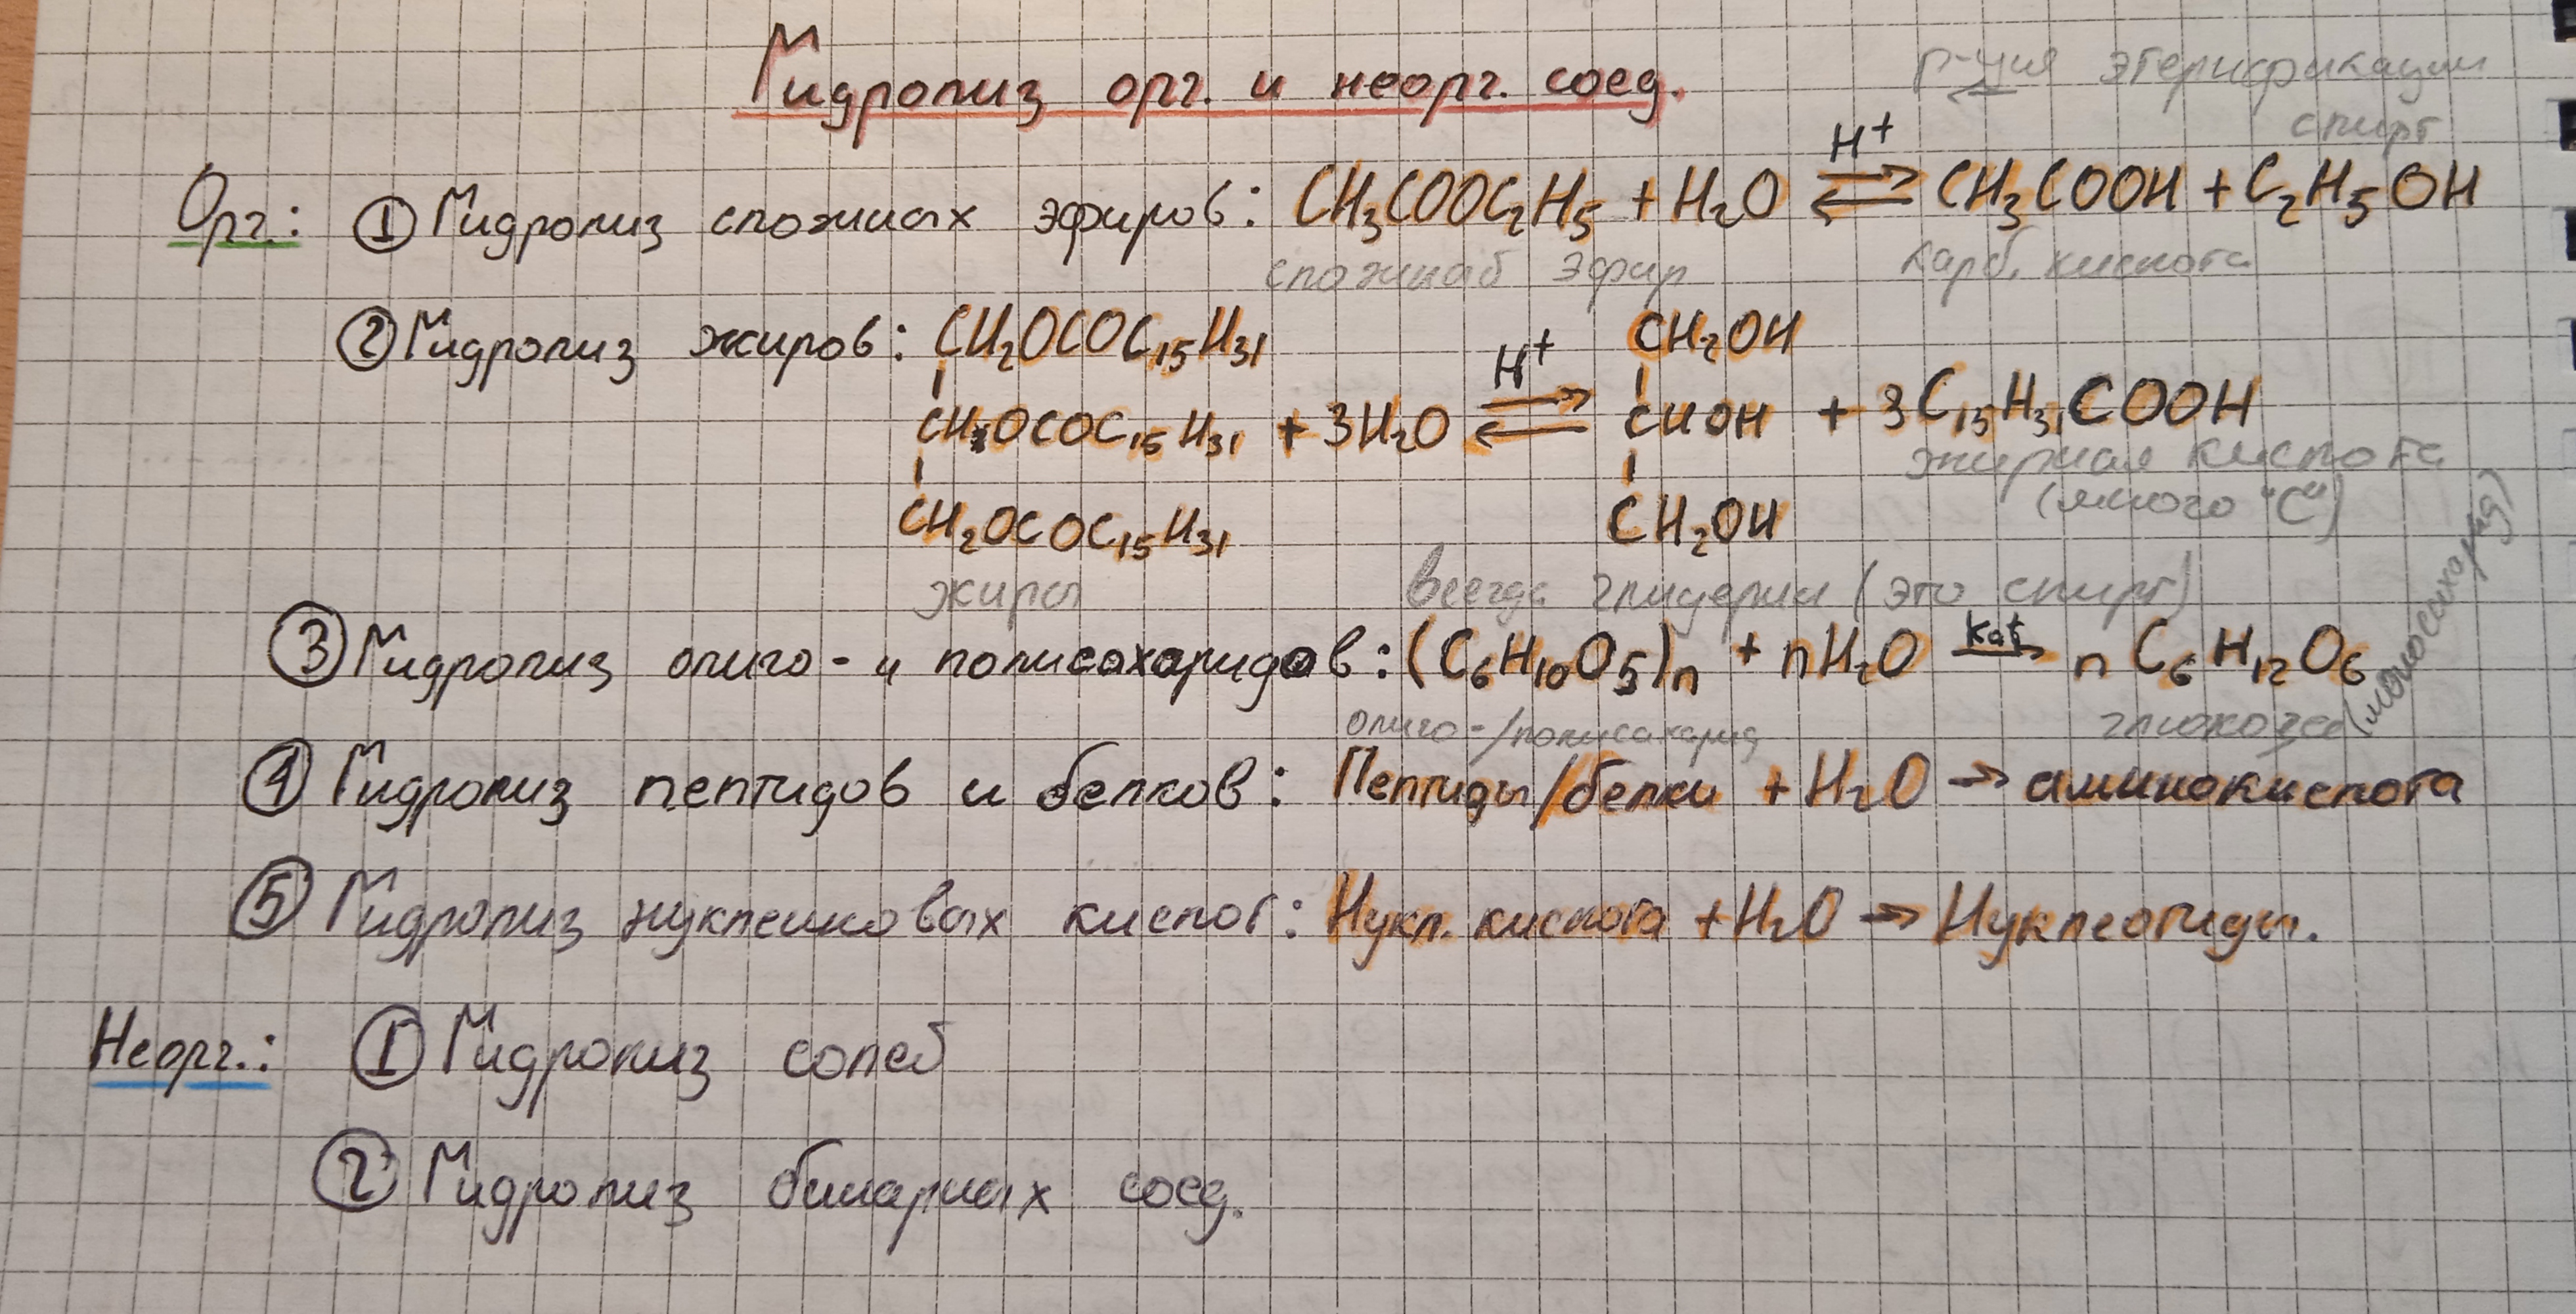 Гидролиз орг. и неорг. соед.
р-ция этерификации
спирт
Орг.: ① Гидролиз сложных эфиров: CH₃COOC₂H₅ + H₂O ⇄ CH₃COOH + C₂H₅OH
H⁺
сложный эфир карб. кислота
② Гидролиз жиров: CH₂OCOC₁₅H₃₁ CH₂OH
H⁺
CHOCOC₁₅H₃₁ + 3H₂O ⇄ CHOH + 3C₁₅H₃₁COOH
жирная кислота
(много "C")
CH₂OCOC₁₅H₃₁ CH₂OH
жиры всегда глицерин (это спирт)
③ Гидролиз олиго- и полисахаридов: (C₆H₁₀O₅)n + nH₂O → n C₆H₁₂O₆
kat
олиго-/полисахарид глюкоза (моносахарид)
④ Гидролиз пептидов и белков: Пептиды/белки + H₂O → аминокислота
⑤ Гидролиз нуклеиновых кислот: Нукл. кислота + H₂O → Нуклеотиды.
Неорг.: ① Гидролиз солей
② Гидролиз бинарных соед.